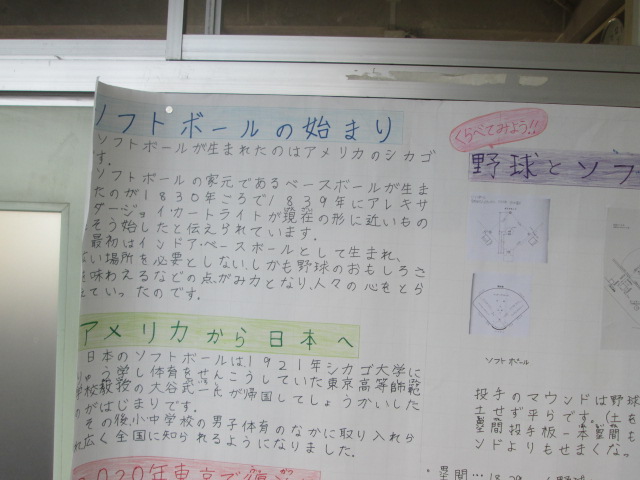 ソフトボールの始まり
ソフトボールが生まれたのはアメリカのシカゴ
す。
ソフトボールの家元であるベースボールが生ま
たのが1830年ころで1839年にアレキサ
ダージョイカートライトが現在の形に近いもの
そう始したと伝えられています。
最初はインドア・ベースボールとして生まれ、
ない場所を必要としない、しかも野球のおもしろさ
味わえるなどの点がみ力となり、人々の心をとら
ていったのです。
アメリカから日本へ
日本のソフトボールは、1921年シカゴ大学に
りゅう学し体育をせんこうしていた東京高等師範
学校教授の大谷武一氏が帰国してしょうかいした
のがはじまりです。
その後、小中学校の男子体育のなかに取り入れら
れ広く全国に知られるようになりました。
2020年東京で復
くらべてみよう!!
野球とソフ
ソフトボール
投手のマウンドは野球
土せず平らです。(土を
塁間投手板-本塁間も
ンドよりもせまくな。
・塁間…18.29